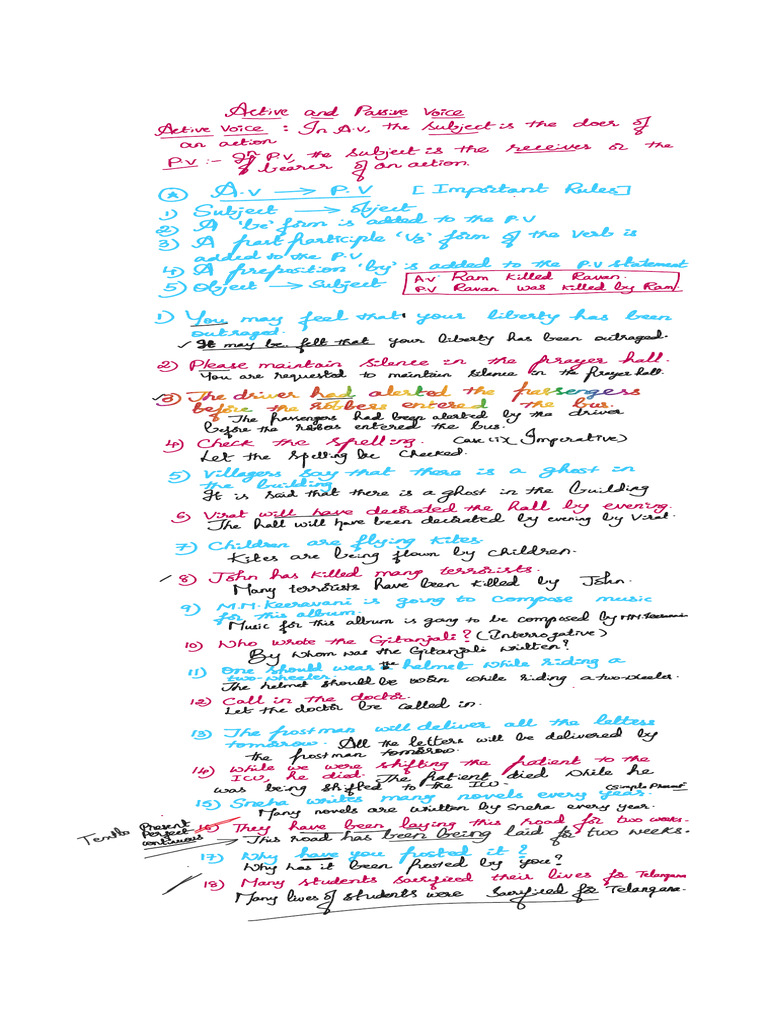 Active and Passive Voice
Active Voice : In A.V, the subject is the doer of
an action
P.V :- In P.V, the subject is the receiver or the
bearer of an action.
A.V → P.V [Important Rules]
1) Subject → object
2) A 'be' form is added to the P.V
3) A past participle 'V3' form of the verb is
added to the P.V
4) A preposition 'by' is added to the P.V statement
5) Object → Subject
A.V Ram killed Ravan.
P.V Ravan was killed by Ram.
1) You may feel that your liberty has been
outraged.
It may be felt that your liberty has been outraged.
2) Please maintain silence in the prayer hall.
You are requested to maintain silence in the Prayer hall.
3) The driver had alerted the passengers
before the robbers entered the bus.
The passengers had been alerted by the driver
before the robbers entered the bus.
4) Check the spelling. Case (Imperative)
Let the spelling be checked.
5) Villagers say that there is a ghost in
the building
It is said that there is a ghost in the building
6) Virat will have decorated the hall by evening.
The hall will have been decorated by evening by Virat.
7) Children are flying kites.
Kites are being flown by children.
8) John has killed many terrorists.
Many terrorists have been killed by John.
9) M.M. Keeravani is going to compose music
for this album.
Music for this album is going to be composed by MM. Keeravani
10) Who wrote the Gitanjali? (Interrogative)
By whom was the Gitanjali written?
11) One should wear the helmet while riding a
two-wheeler.
The helmet should be worn while riding a two-wheeler.
12) Call in the doctor.
Let the doctor be called in.
13) The postman will deliver all the letters
tomorrow. All the letters will be delivered by
the postman tomorrow.
14) While we were shifting the patient to the
ICU, he died. The patient died while he
was being shifted to the ICU.
(Simple Present)
15) Sneha writes many novels every year.
Many novels are written by Sneha every year.
16) They have been laying this road for two weeks.
Present
Perfect
continuous
This road has been being laid for two weeks.
17) Why have you posted it?
Why has it been posted by you?
18) Many students sacrificed their lives for Telangana
Many lives of students were sacrificed for Telangana.